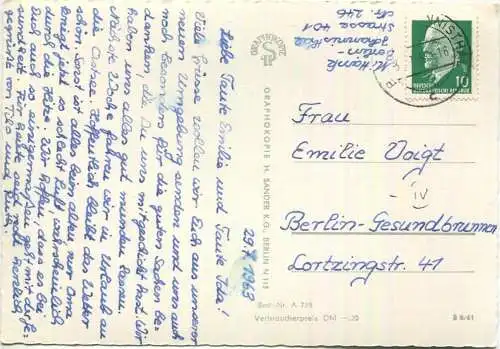 Liebe Tante Emilie und Tante Ida!
Viele Grüsse wollen wir Euch aus unserer
neuen Umgebung senden und uns auch
noch besonders für die guten Sachen be-
danken, die Du uns mitgeschickt hast. Wir
haben uns alles gut munden lassen.
Nächste Woche fahren wir in Urlaub an
die Ostsee. Hoffentlich bleibt das Wetter
schön. Sonst ist alles beim alten, nur Oma
kriegt jetzt so schlecht Luft, wahrscheinlich
durch die Hitze. Wir hoffen, dass es bei
Euch auch so einigermassen geht mit der Ge-
sundheit. Für heute seid recht herzlich
gegrüsst von und Ruth.
29.7.1963
GRAPHOKOPIE
GRAPHOKOPIE H. SANDER K.G., BERLIN N 113
Best.-Nr. A 728
Verbraucherpreis DM -.20
B 8/61
Strasse 401
Nr. 246
10
Frau
Emilie Voigt
IV
Berlin-Gesundbrunnen
Lortzingstr. 41